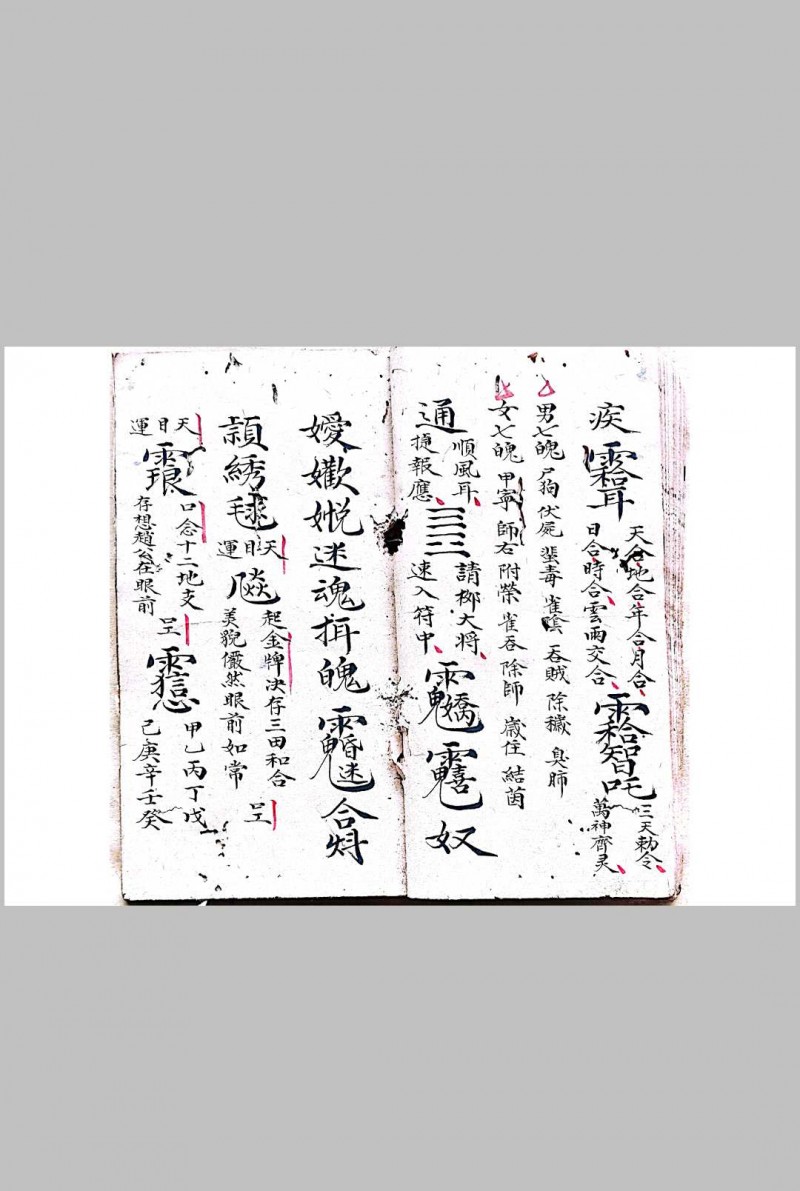 疾
天合地合年合月合
日合時合雲雨交合
三天勅令
萬神齊灵
男七魄 尸狗 伏屍 蜚毒 雀陰 吞賊 除穢 臭肺
女七魄 甲寧 師右 附榮 雀吞 除師 歲住 結茵
通
順風耳
捷報應
三三
請柳大将
速入符中
奴
嬡
迷魂
魄
合
頴綉毬
天目運
起金牌决存三田和合
美貎儼然眼前如常
天目運
口念十二地支
存想趙公在眼前
甲乙丙丁戊
己庚辛壬癸